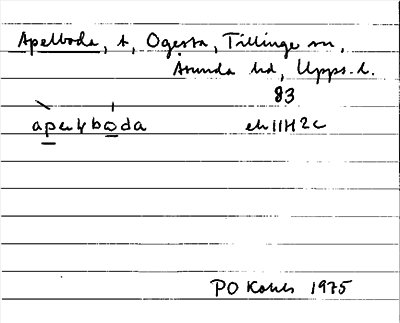 Apelboda, t, Ogesta, Tillinge sn,
Åsunda hd, Upps. l.
83
apelboda ek 11H2c
PO Kohls 1975